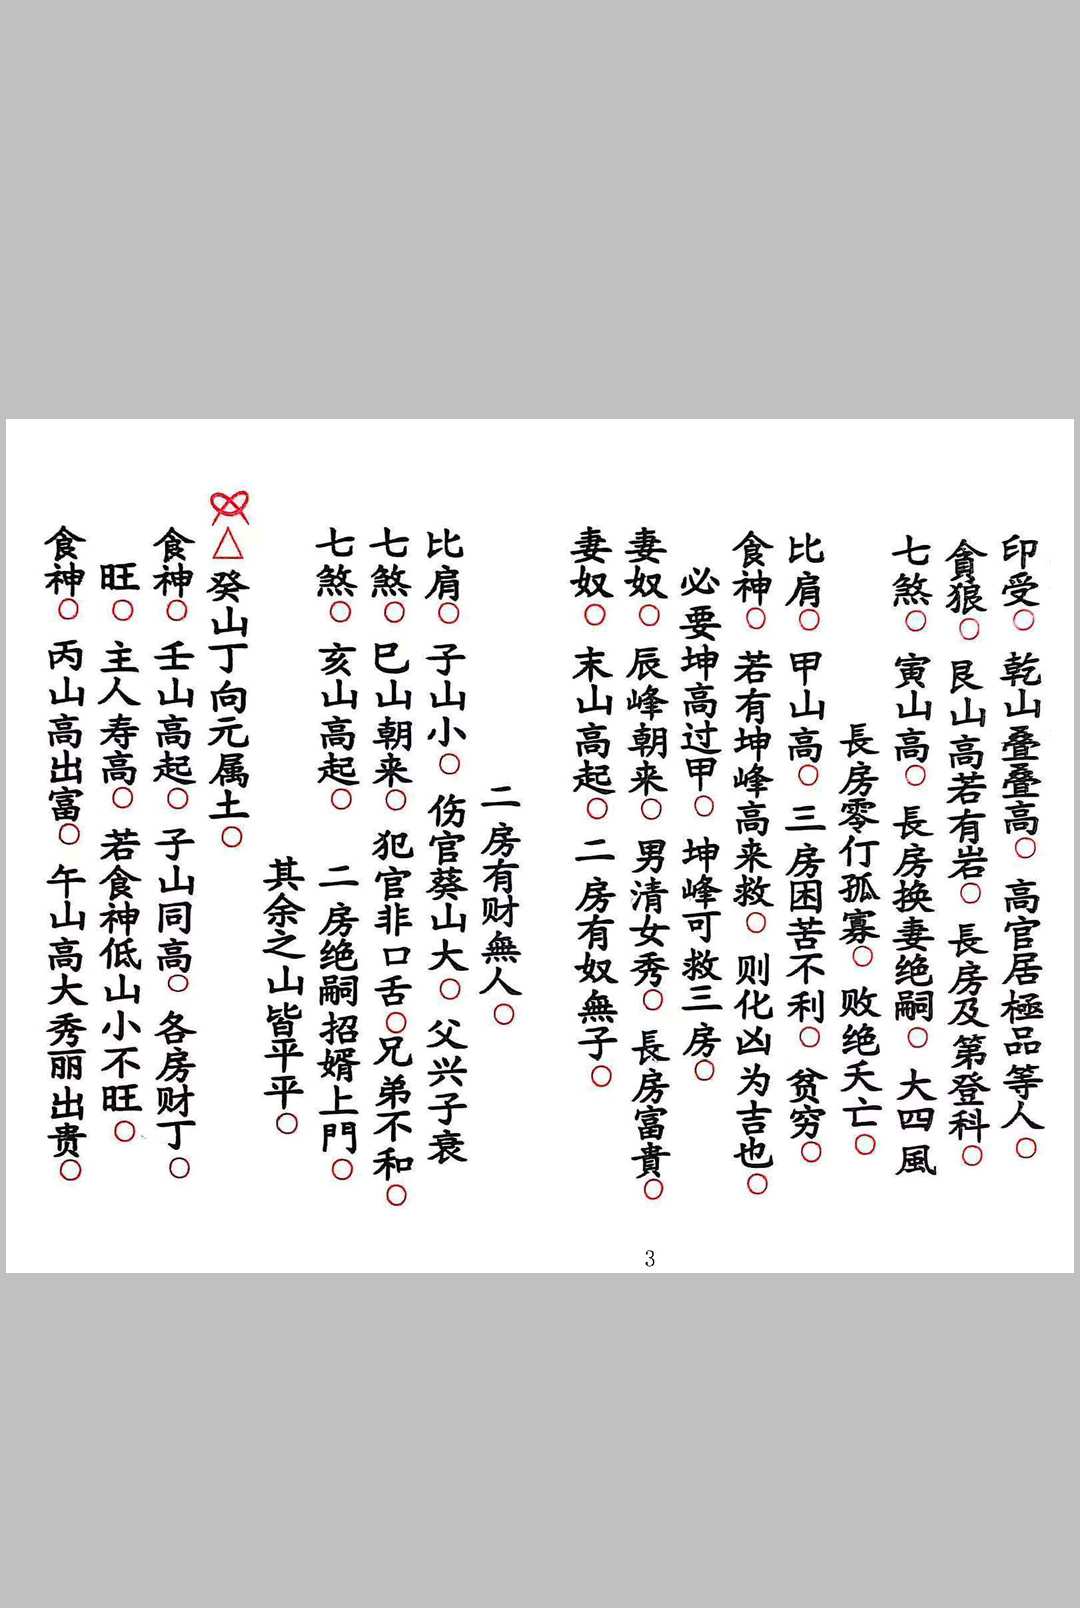 印受○乾山叠叠高○高官居極品等人○
貪狼○艮山高若有岩○長房及第登科○
七煞○寅山高○長房换妻绝嗣○大四風
長房零仃孤寡○败绝夭亡○
比肩○甲山高○三房困苦不利○贫穷○
食神○若有坤峰高来救○则化凶为吉也○
必要坤高过甲○坤峰可救三房○
妻奴○辰峰朝来○男清女秀○長房富貴○
妻奴○末山高起○二房有奴無子○
二房有财無人○
比肩○子山小○伤官葵山大○父兴子衰
七煞○巳山朝来○犯官非口舌○兄弟不和○
七煞○亥山高起○二房绝嗣招婿上門○
其余之山皆平平○
△癸山丁向元属土○
食神○壬山高起○子山同高○各房财丁○
旺○主人寿高○若食神低山小不旺○
食神○丙山高出富○午山高大秀丽出贵○
3